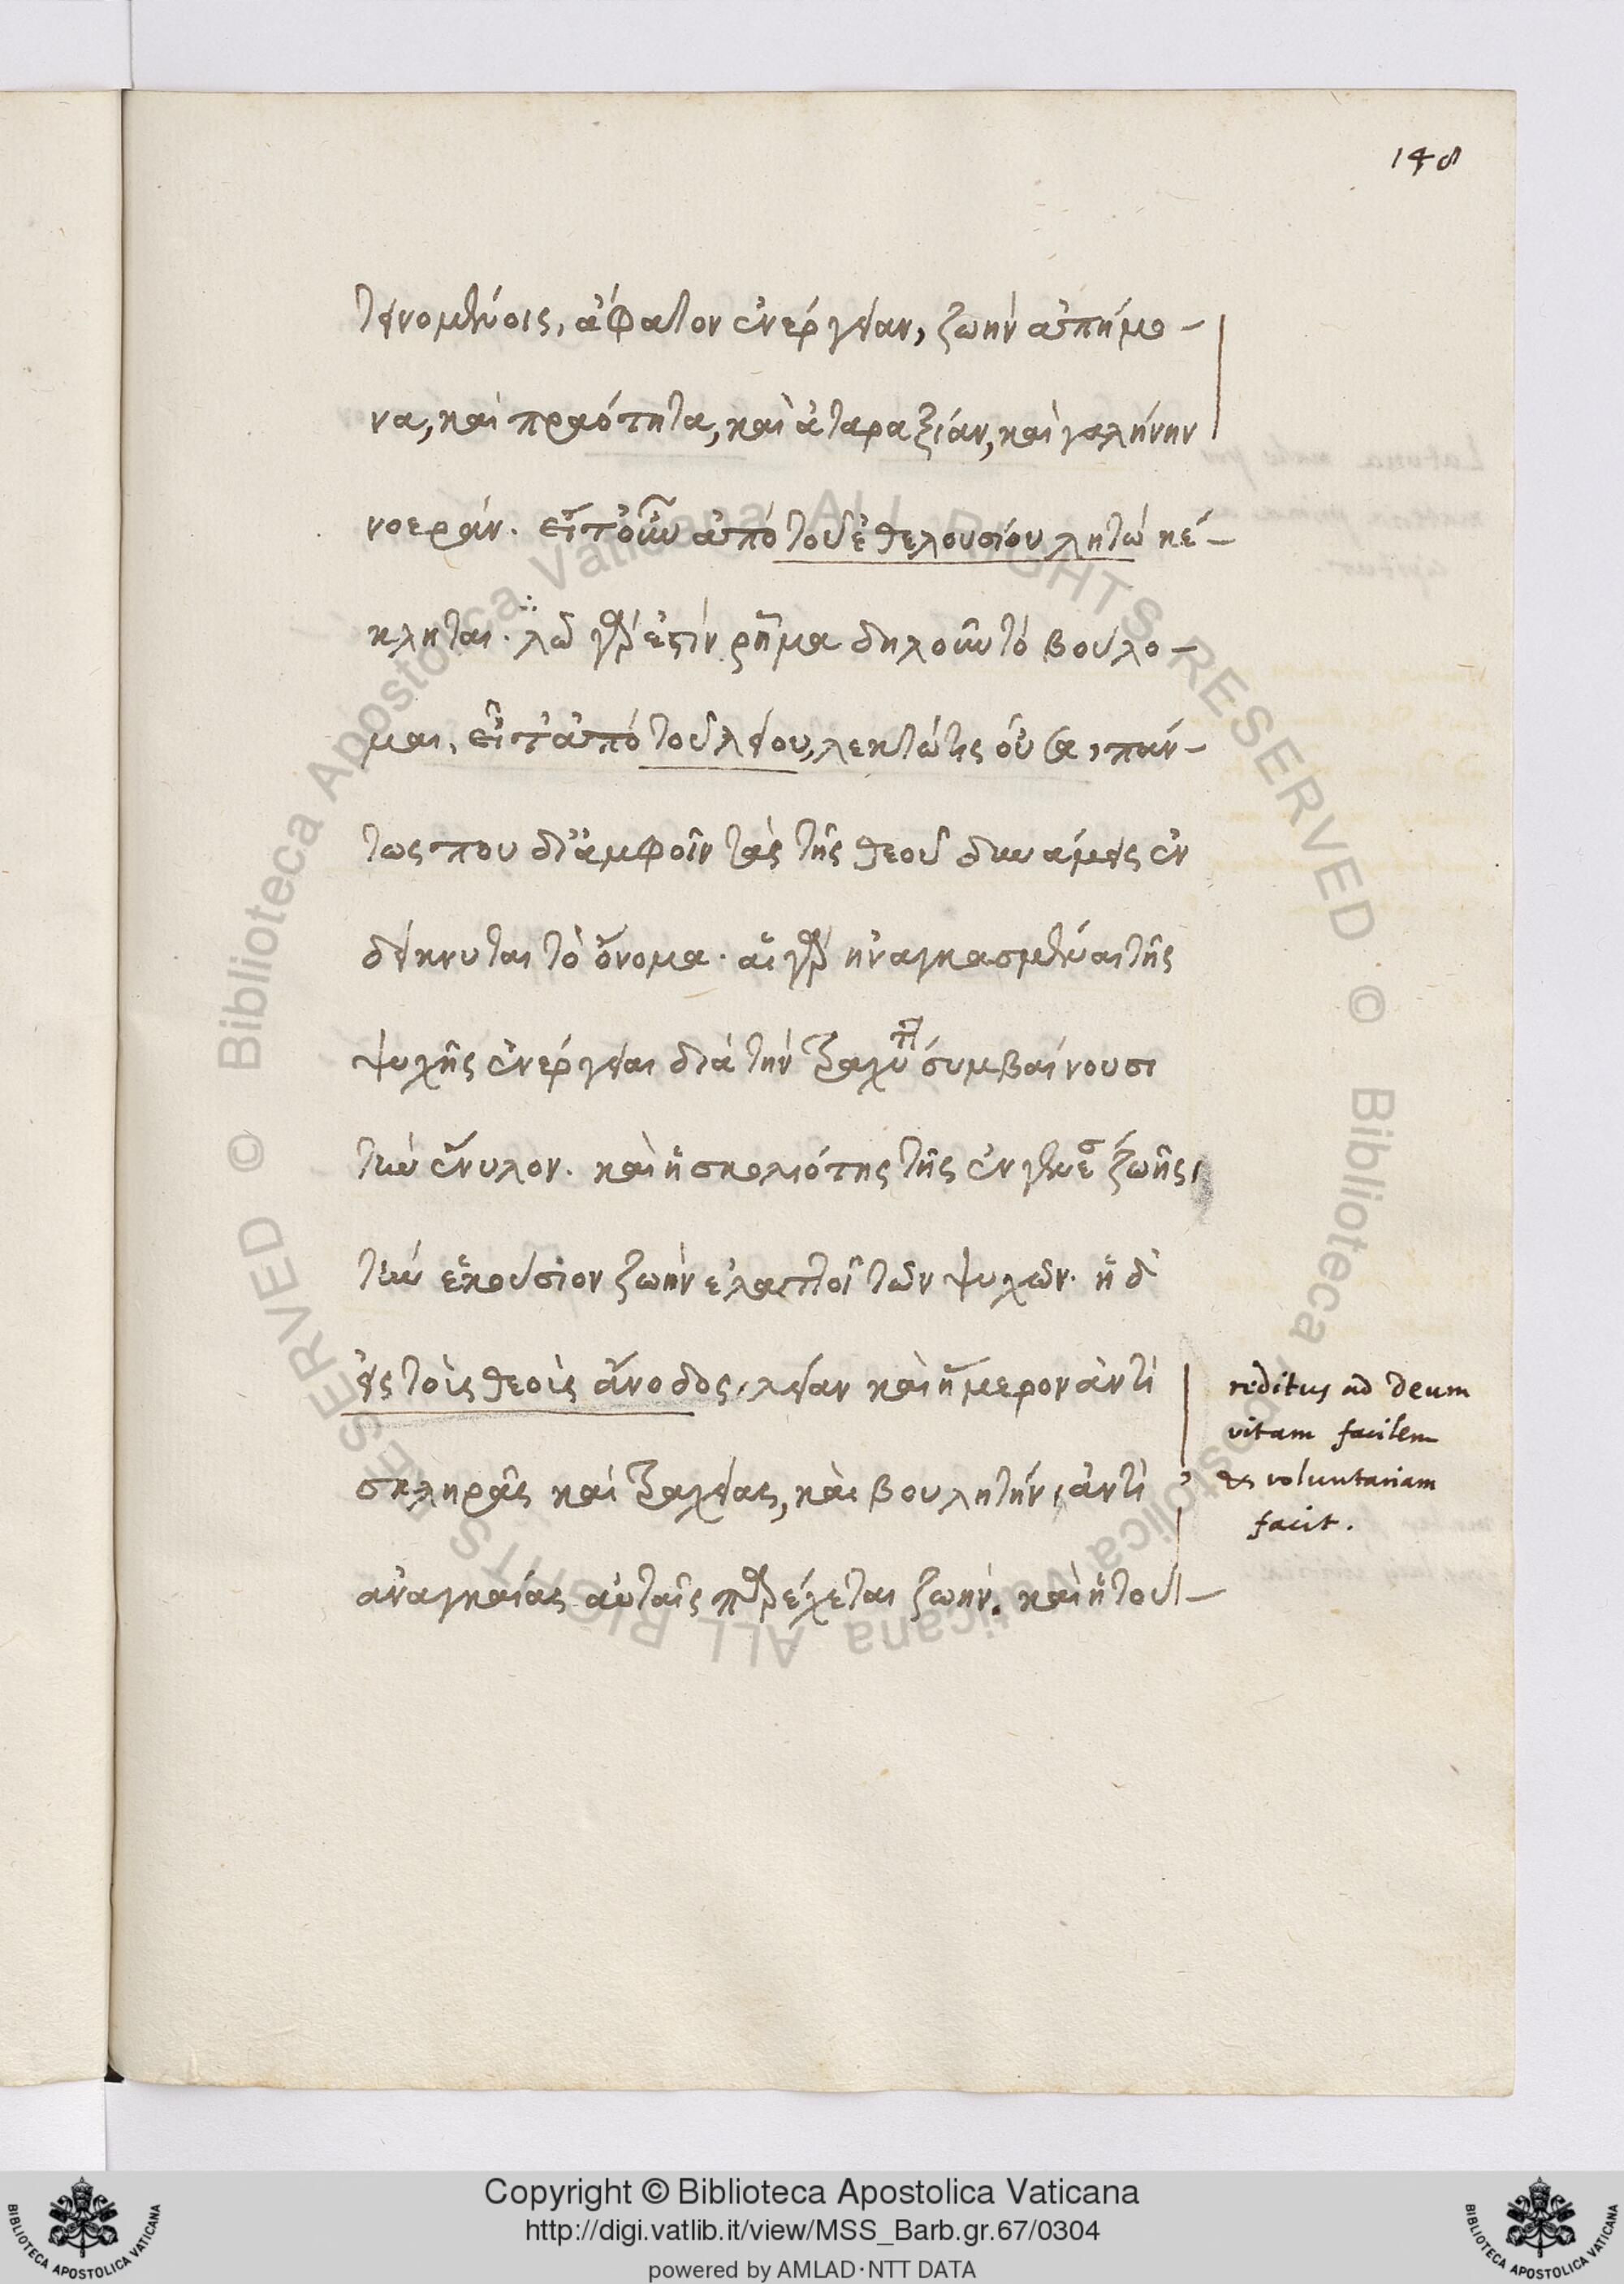 148
τεινομένοις, ἄφατον ἐνέργειαν, ζωὴν ἀπήμο-
να, καὶ πραότητα, καὶ ἀταραξίαν, καὶ γαλήνην
νοεράν. εἴτ' οὖν ἀπὸ τοῦ ἐθελουσίου λητὼ κέ-
κληται. λῶ γάρ ἐστιν ῥῆμα δηλοῦν τὸ βούλο-
μαι. εἴτ' ἀπὸ τοῦ λείου, λεητώ τις οὖσα, πάν-
τως που δι' ἀμφοῖν τὰς τῆς θεοῦ δυνάμεις ἐν
δείκνυται τὸ ὄνομα. αἱ γὰρ ἠναγκασμέναι τῆς
ψυχῆς ἐνέργειαι διὰ τὴν τραχύτη συμβαίνουσι
τὴν ἔνυλον. καὶ ἡ σκολιότης τῆς ἐν γενέσ ζωῆς,
τὴν ἑκούσιον ζωὴν ἐλαττοῖ τῶν ψυχῶν. ἡ δ'
εἰς τοὺς θεοὺς ἄνοδος, λείαν καὶ ἥμερον ἀντὶ
σκληρᾶς καὶ τραχείας, καὶ βουλητὴν, ἀντὶ
ἀναγκαίας αὐταῖς παρέχεται ζωήν. καὶ ἡ τοῦ-
reditus ad Deum
vitam facilem
et voluntariam
facit.
Copyright © Biblioteca Apostolica Vaticana
http://digi.vatlib.it/view/MSS_Barb.gr.67/0304
powered by AMLAD·NTT DATA
© Biblioteca Apostolica Vaticana ALL RIGHTS RESERVED
© Biblioteca Apostolica Vaticana ALL RIGHTS RESERVED
BIBLIOTECA APOSTOLICA VATICANA
BIBLIOTECA APOSTOLICA VATICANA